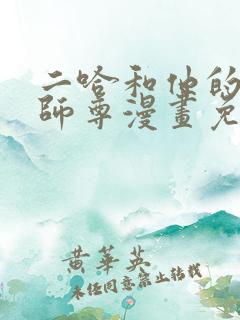 二哈和他的
師尊漫畫免
黃華英
未经同意禁止转载